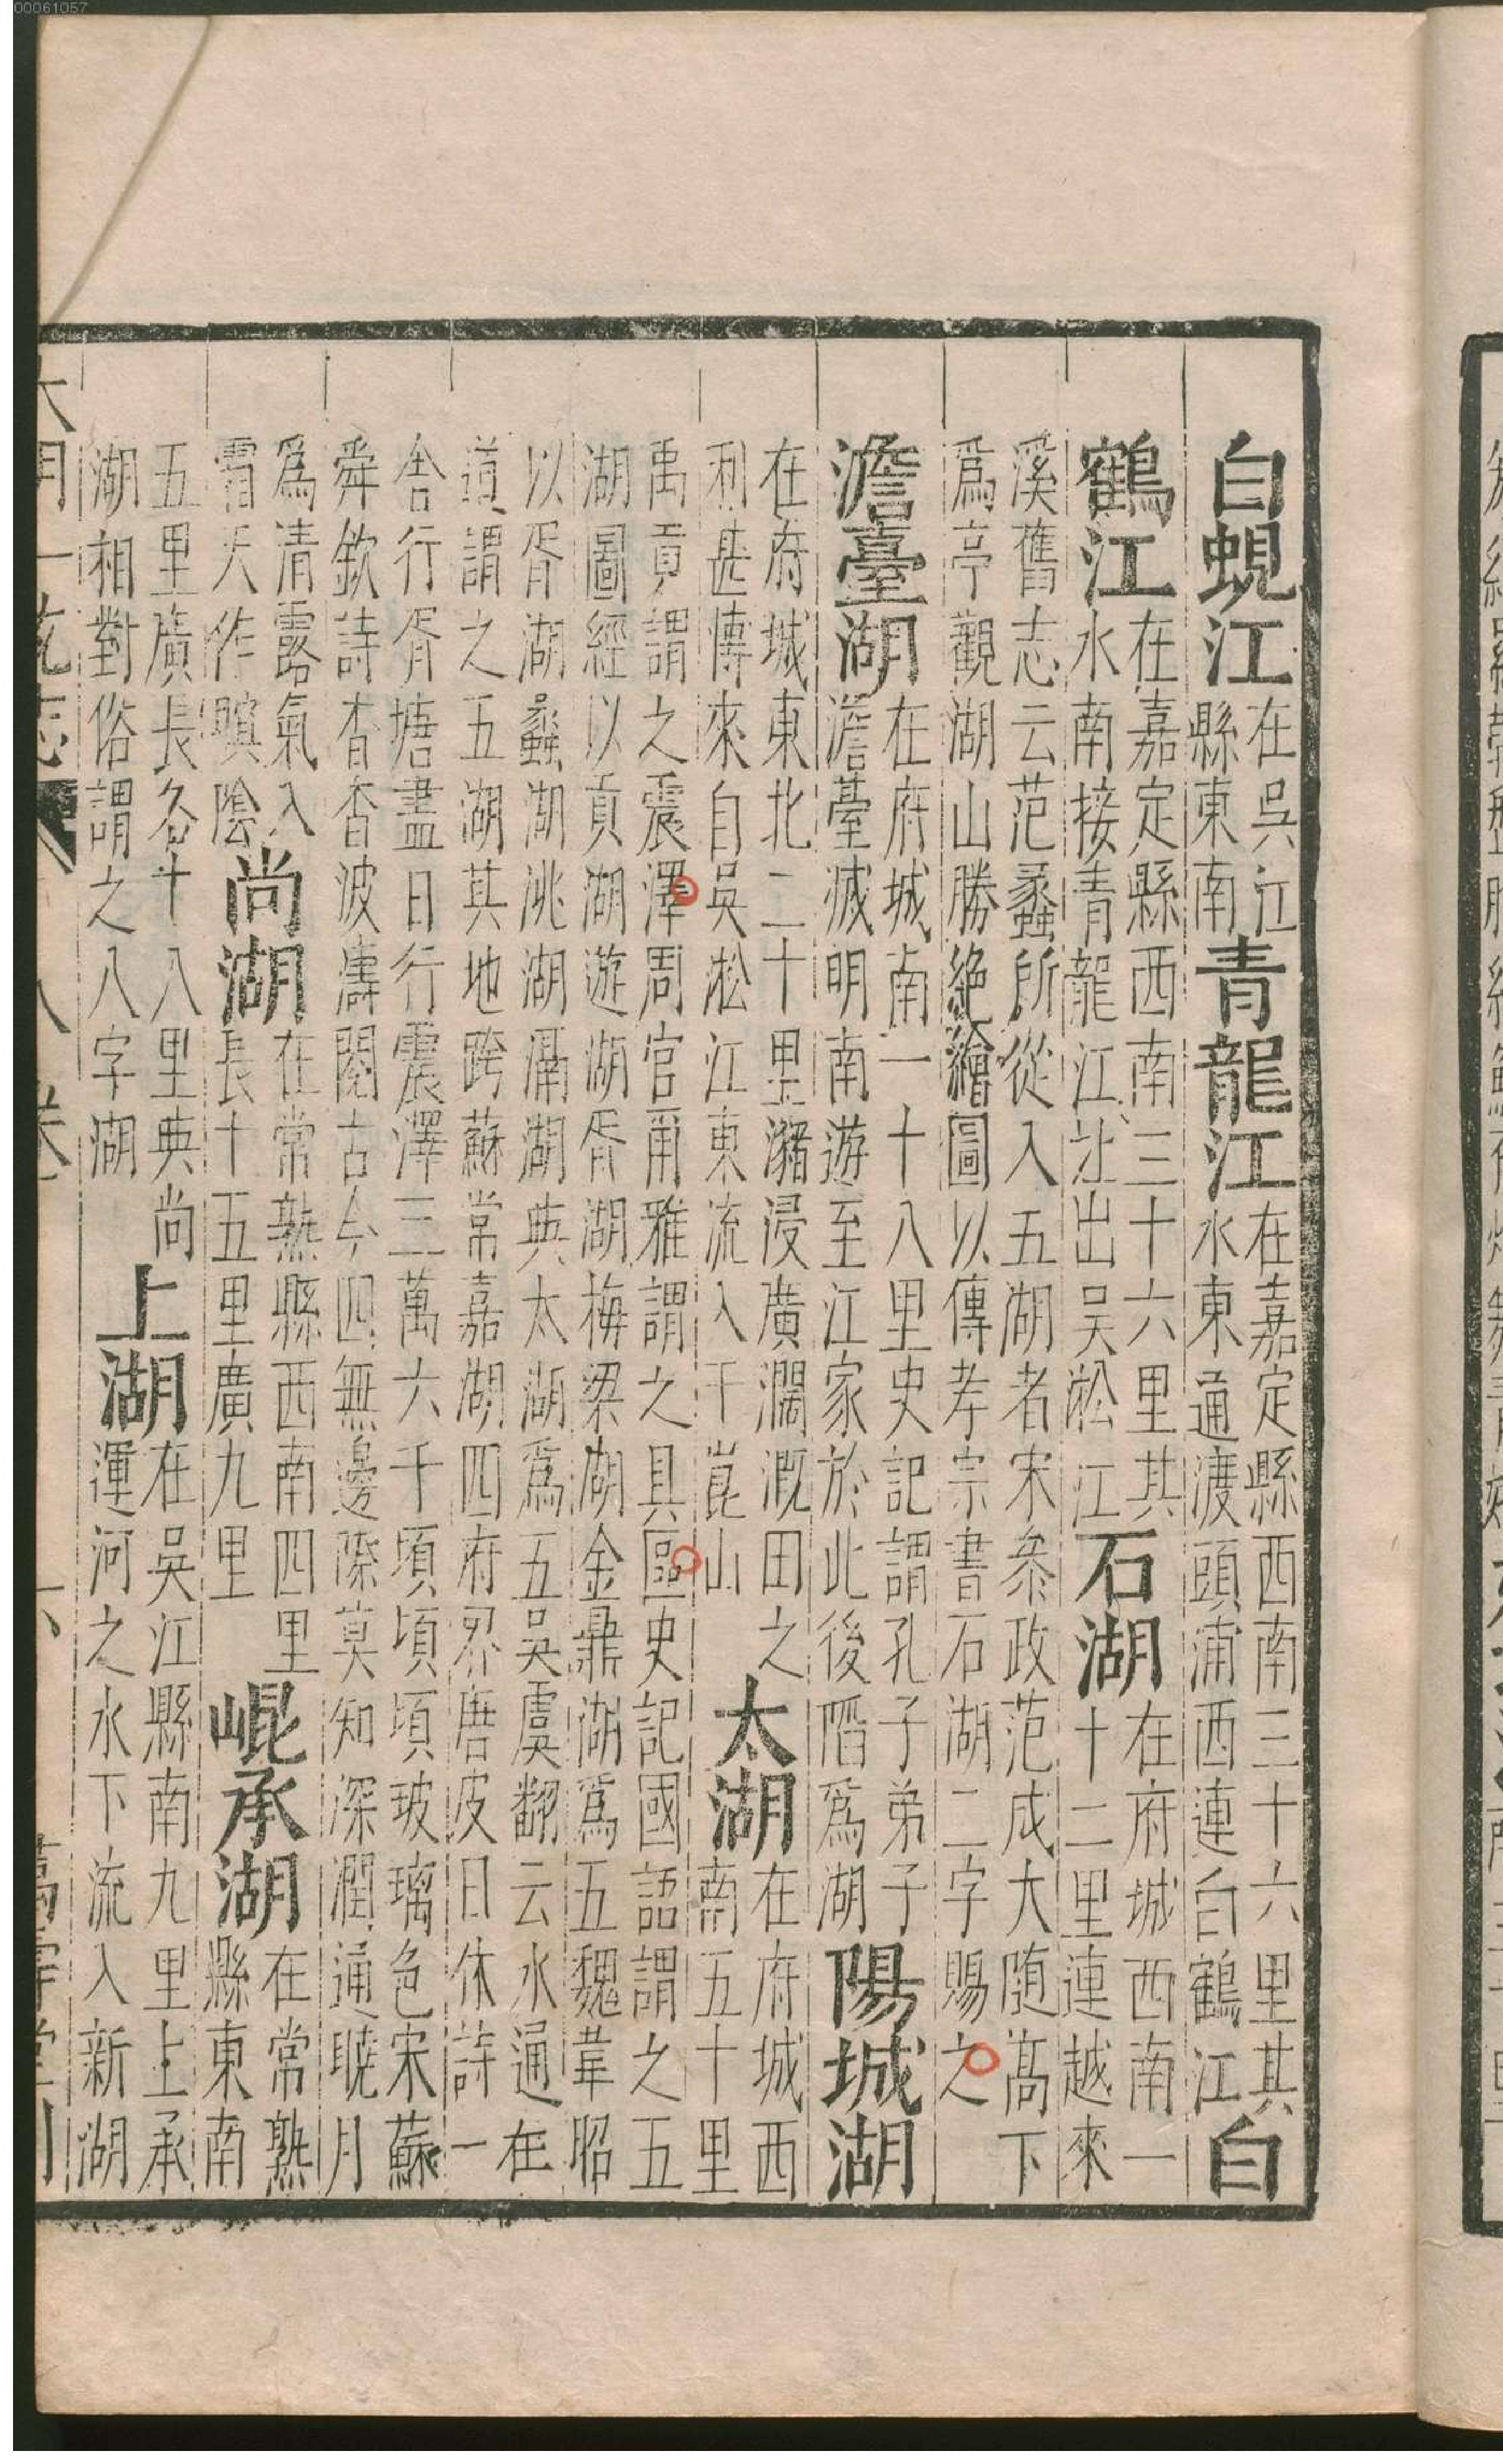 白蜆江在吳江縣東南青龍江在嘉定縣西南三十六里其水東通渡頭浦西連白鶴江白
鶴江在嘉定縣西南三十六里其水南接青龍江北出吳淞江石湖在府城西南一十二里連越來
溪舊志云范蠡所從入五湖者宋叅政范成大随髙下
爲亭觀湖山勝絶繪圖以傳孝宗書石湖二字賜之
澹臺湖在府城南一十八里史記謂孔子弟子澹臺滅明南遊至江家於此後陷爲湖陽城湖
在府城東北二十里瀦浸廣濶溉田之利甚慱來自吳淞江東流入干崑山太湖在府城西南五十里
禹貢謂之震澤周官爾雅謂之具區史記國語謂之五
湖圖經以貢湖遊湖胥湖梅梁湖金鼎湖爲五魏韋昭
以胥湖蠡湖洮湖滆湖與太湖爲五吳虞翻云水通在
道謂之五湖其地跨蘇常嘉湖四府界唐皮日休詩一
舍行胥塘盡日行震澤三萬六千頃頃頃玻璃色宋蘇
舜欽詩杳杳波濤閱古今四無邊際莫知深潤通曉月
爲清露氣入霜天作暝陰尚湖在常熟縣西南四里長十五里廣九里崐承湖在常熟縣東南
五里廣長各十八里與尚湖相對俗謂之八字湖上湖在吳江縣南九里上承運河之水下流入新湖
大明一統志 八卷 六 萬壽堂刊
00061057